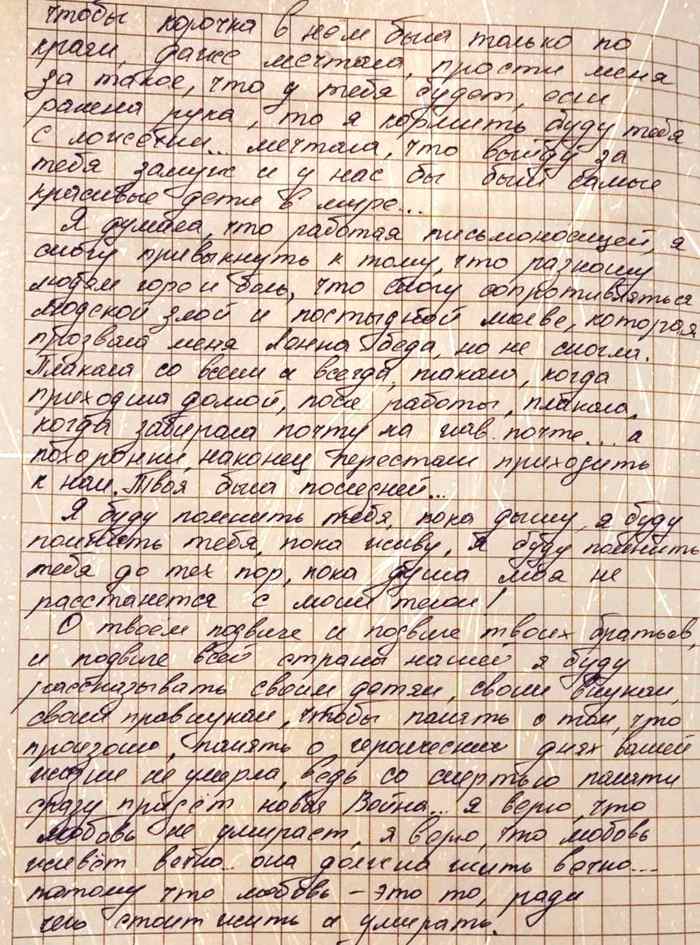 чтобы корочка в нем была только по
краги, даже мечтала, прости меня
за такое, что у тебя будет, если
ранена рука, то я кормить буду тебя
с ложечки... мечтала, что выйду за
тебя замуж и у нас бы были самые
красивые дети в мире...
Я думала, что работая письмоносицей, я
смогу привыкнуть к тому, что разношу
людям горе и боль, что смогу сопротивляться
людской злой и постыдной молве, которая
прозвала меня Донна беда, но не смогла.
Плакала со всеми и всегда, плакала, когда
приходила домой, после работы, плакала,
когда забирала почту на глав. почте... а
похоронки, наконец перестали приходить
к нам. Твоя была последней...
Я буду помнить тебя, пока дышу, я буду
помнить тебя, пока живу, я буду помнить
тебя до тех пор, пока душа моя не
расстанется с моим телом!
О твоем подвиге и подвиге твоих братьев,
и подвиге всей страны нашей я буду
рассказывать своим детям, своим внукам,
своим правнукам, чтобы память о том, что
произошло, память о героических днях вашей
жизни не умерла, ведь со смертью памяти
сразу придёт новая Война... я верю, что
любовь не умирает, я верю, что любовь
живёт вечно... она должна жить вечно...
потому что любовь - это то, ради
чего стоит жить и умирать.